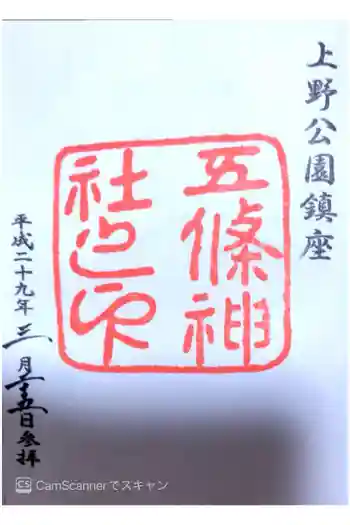 上野公園鎮座
五條神
社之印
平成二十九年三月二十五日参拝
CS CamScannerでスキャン